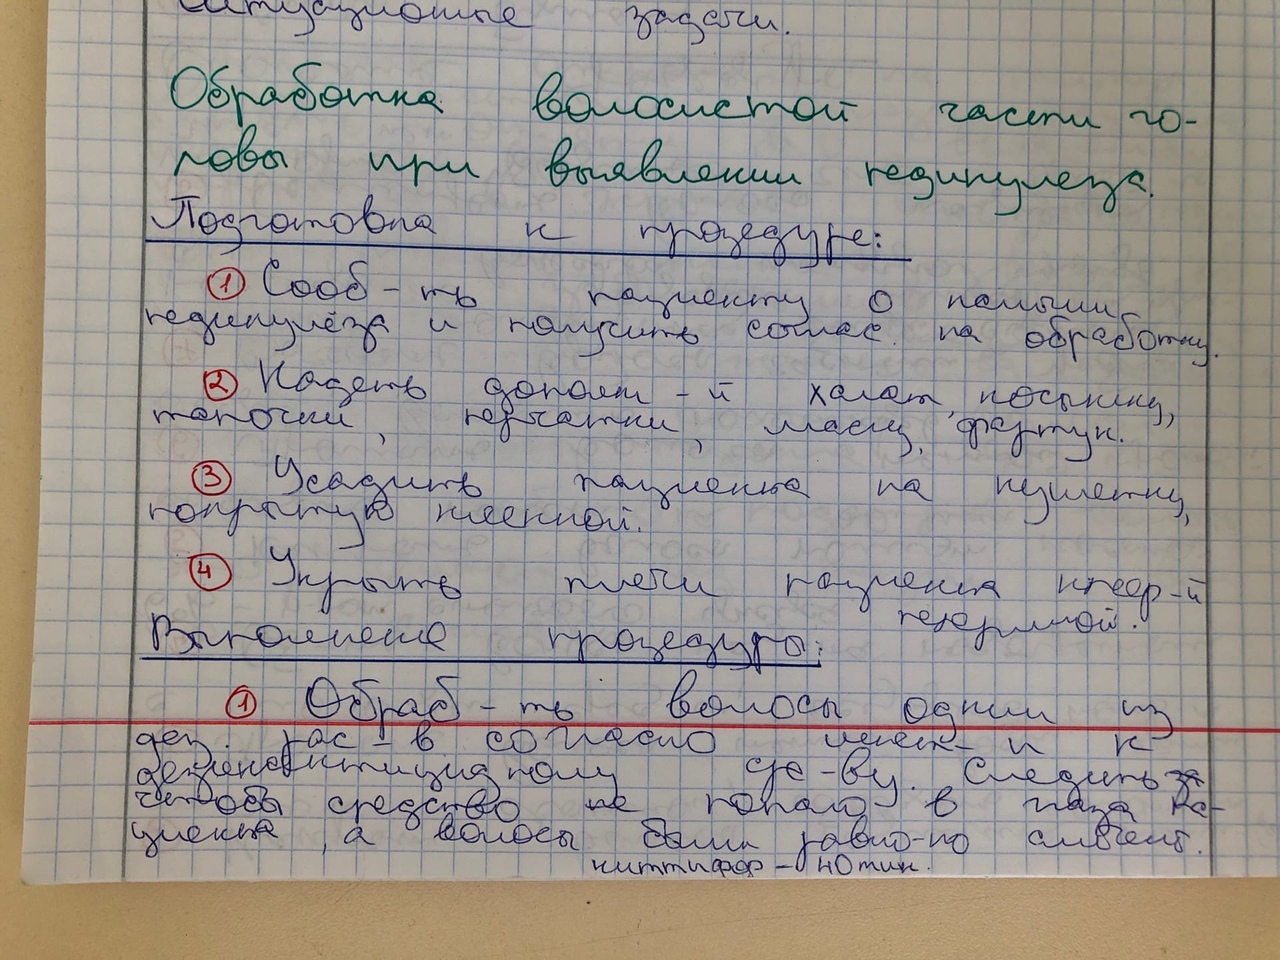 ситуационные задачи.
Обработка волосистой части го-
ловы при выявлении педикулеза.
Подготовка к процедуре:
① Сооб-ть пациенту о наличии
педикулёза и получить соглас. на обработку.
② Надеть дополн-й халат, косынку,
тапочки, перчатки, маску, фартук.
③ Усадить пациента на кушетку,
покрытую клеенкой.
④ Укрыть плечи пациента клеер-й
пелериной.
Выполнение процедуры:
① Обраб-ть волосы одним из
дез. рас-в согласно инст-и к
дезинсектицидному ср-ву. Следить за
чтобы средство не попало в глаза па-
циента, а волосы были равно-но смочены.
ниттифор - 40 мин.